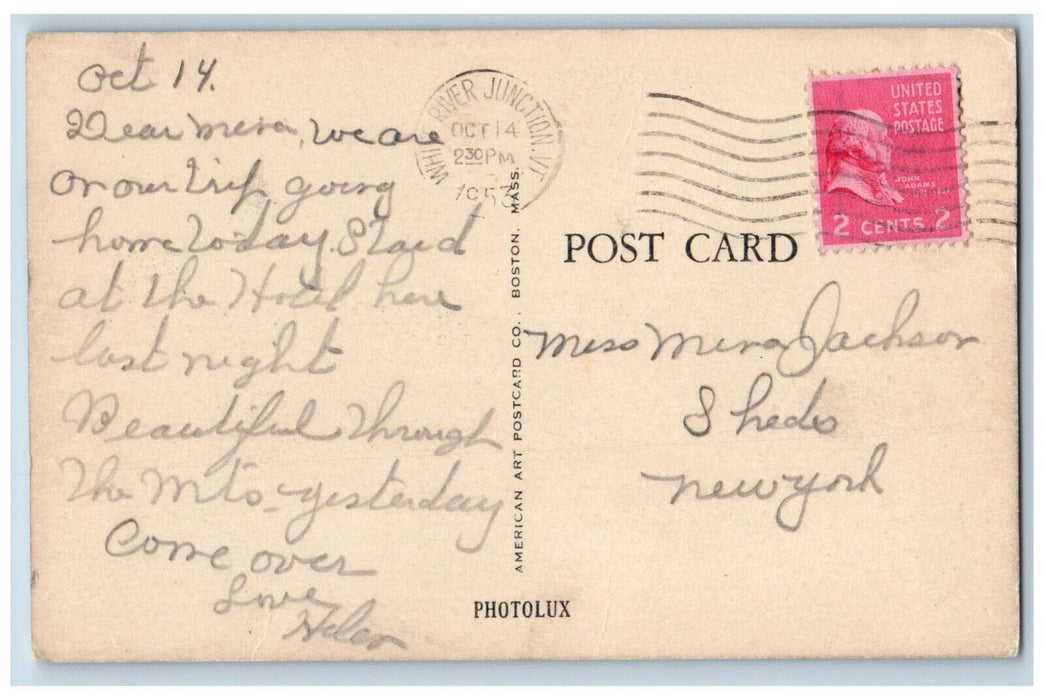 Oct 14.
Dear Mera, we are
on our trip going
home today Staid
at the Hotel here
last night
Beautiful through
the Mts - yesterday
Come over
Love
Helen
WHITE RIVER JUNCTION, VT.
OCT 14
2 30 PM
1953
UNITED
STATES
POSTAGE
JOHN
ADAMS
2 CENTS 2
POST CARD
Miss Mera Jackson
Sheds
New York
AMERICAN ART POSTCARD CO., BOSTON, MASS.
PHOTOLUX